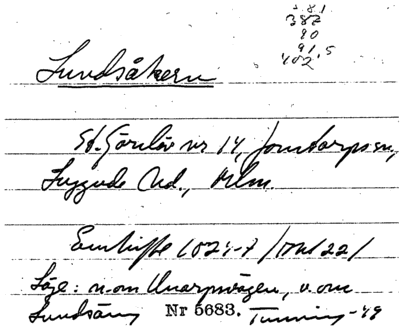 381
382
90
91.5
402
Lundsåkern
St. Görslöv nr 14, Jonstorps sn,
Luggude hd., Mlm.
Enskifte 1824-7 / 22 /
Läge: n.om Unarpsvägen, v.om
Lundsäng Nr 5683. Tunning-49